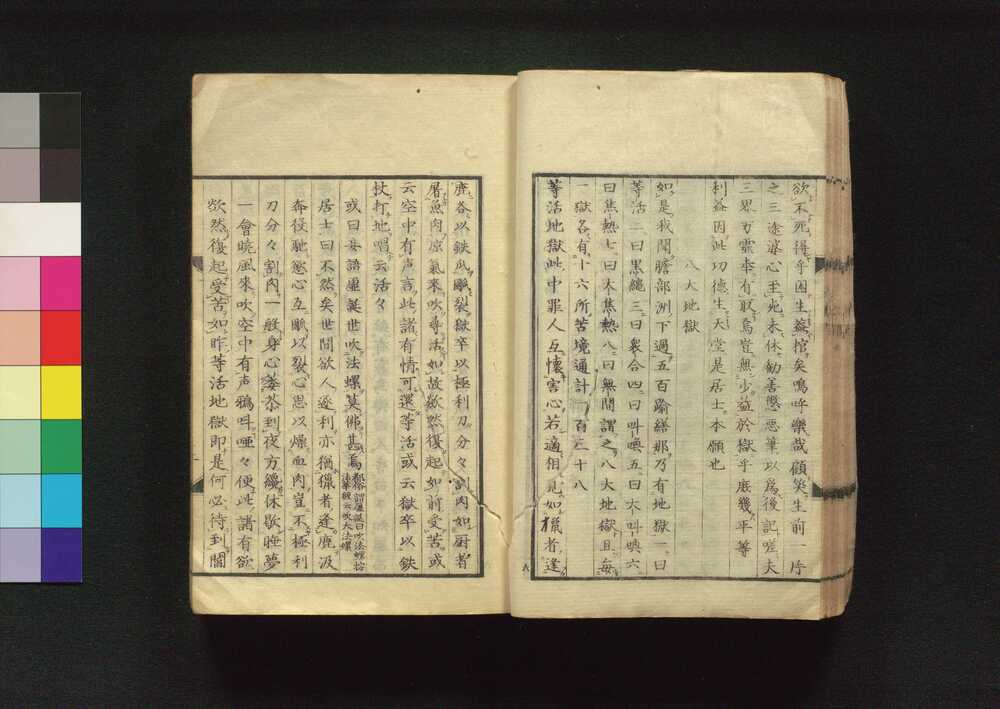 欲不死得乎因生蓋棺矣嗚呼樂哉顧笑生前一序
之三途婆心至死未休勧善懲悪筆以爲後記嗟夫
三界万靈奉有取焉豈無少益於獄乎庶幾平等
利益因此功德生天堂是居士本願也
八大地獄
如是我聞瞻部洲下過五百踰繕那乃有地獄一曰
等活二曰黒繩三曰衆合四曰叫喚五曰大叫喚六
曰焦熱七曰大焦熱八曰無間謂之八大地獄且毎
一獄各有十六所苦境通計一百三十八
等活地獄此中罪人互懷害心若適相見如獵者逢
鹿各以鉄爪𤔩裂獄卒以極利刀分々割肉如厨者
屠魚肉凉氣來吹尋活如故欻然復起如前受苦或
云空中有声言此諸有情可還等活或云獄卒以鉄
杖打地唱云活々
或曰妄語虛誕世吹法螺莫佛甚焉都俗謂虛誕曰吹法螺按
法華経云吹大法螺
居士曰不然矣世間欲人逐利亦猶獵者逢鹿汲
奔役馳慾心互𤔩以裂心思以爍血肉豈不極利
刀分々割肉一般身心萎苶到夜方纔休歇睡夢
一會暁風來吹空中有声鴉叫唖々便此諸有欲
欻然復起受苦如昨等活地獄即是何必待到閻
八